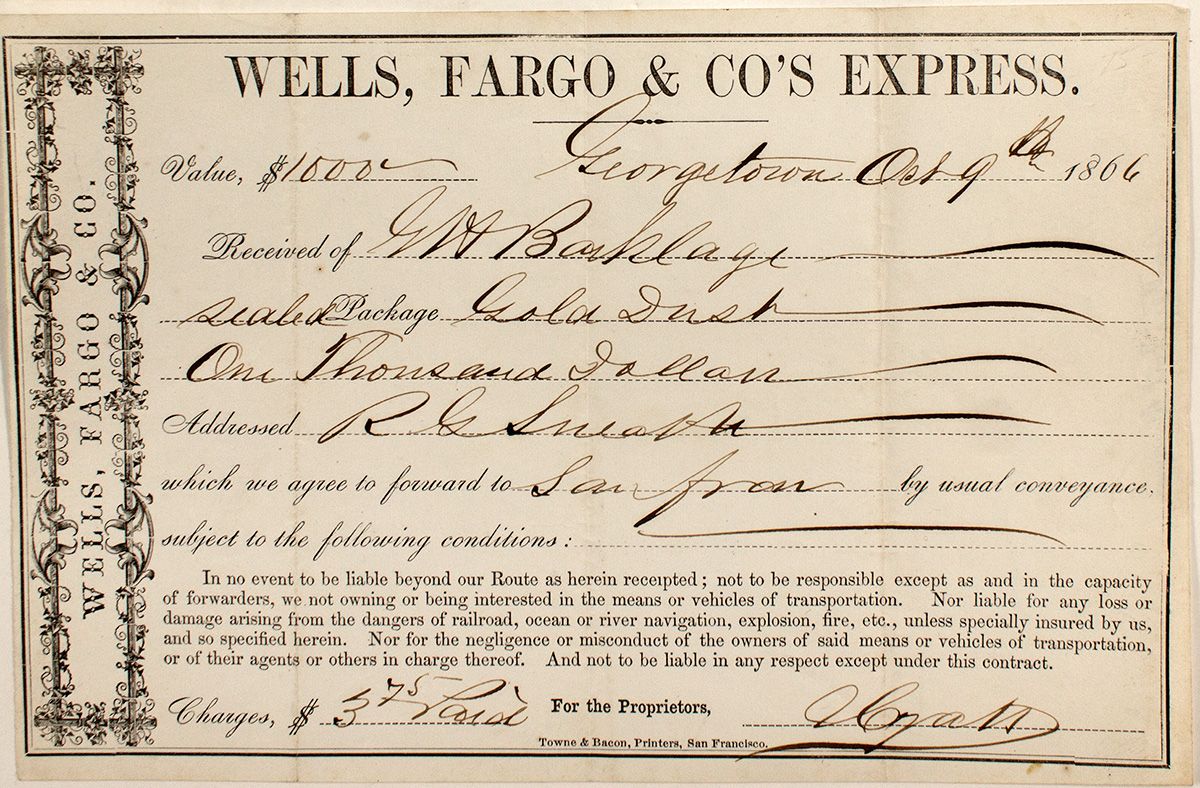 WELLS, FARGO & CO'S EXPRESS.
Value, $1000 Georgetown Oct 9th 1866
Received of G W H Barklage
sealed Package Gold Dust
One Thousand Dollars
Addressed R G Sneath
which we agree to forward to San Fran by usual conveyance,
subject to the following conditions:
In no event to be liable beyond our Route as herein receipted; not to be responsible except as and in the capacity
of forwarders, we not owning or being interested in the means or vehicles of transportation. Nor liable for any loss or
damage arising from the dangers of railroad, ocean or river navigation, explosion, fire, etc., unless specially insured by us,
and so specified herein. Nor for the negligence or misconduct of the owners of said means or vehicles of transportation,
or of their agents or others in charge thereof. And not to be liable in any respect except under this contract.
Charges, $ 3 75 Paid For the Proprietors, Hyatt
Towne & Bacon, Printers, San Francisco.
WELLS, FARGO & CO.